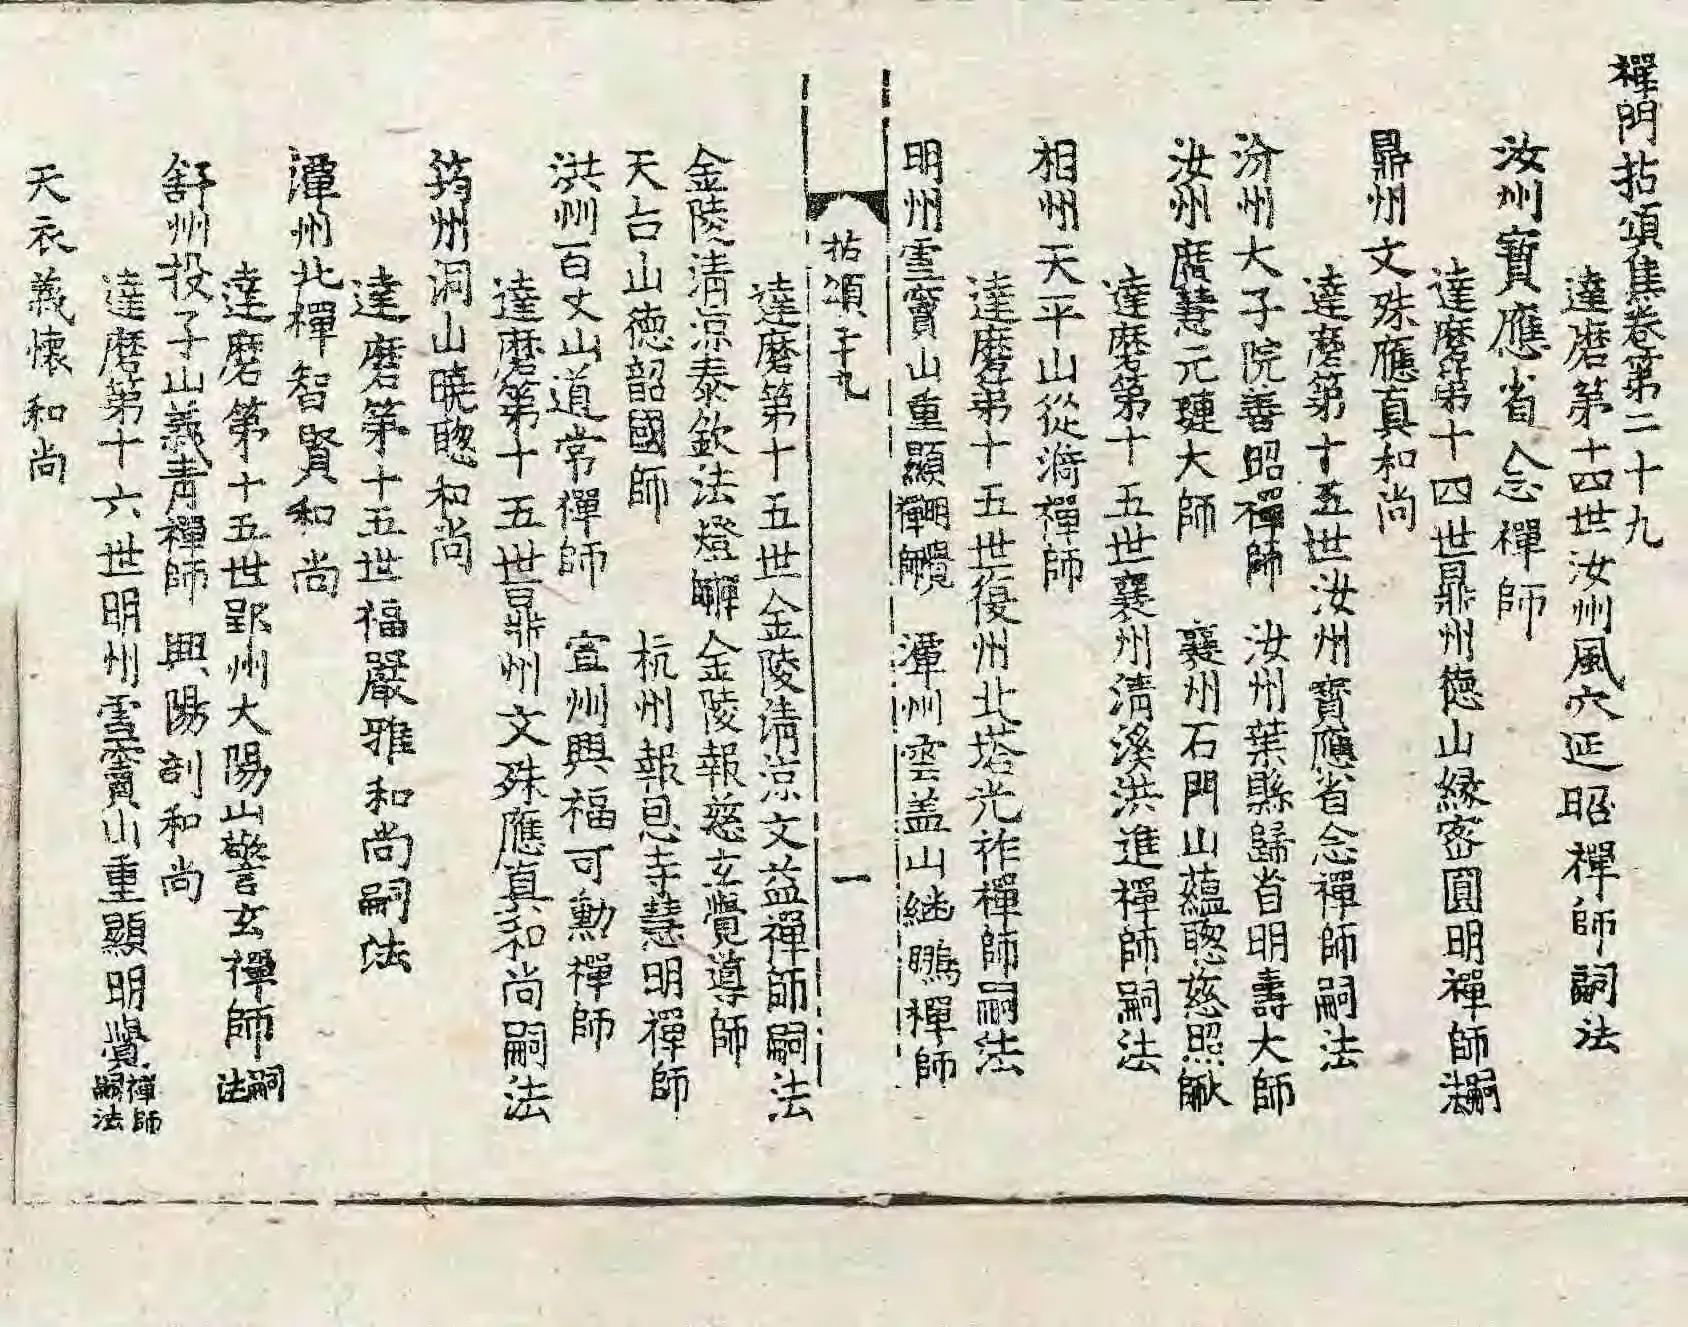 禪門拈頌集卷第二十九
達磨第十四世汝州風穴延昭禪師嗣法
汝州寶應省念禪師
達磨第十四世鼎州德山緣密圓明禪師嗣法
鼎州文殊應真和尚
達磨第十五世汝州寶應省念禪師嗣法
汾州大子院善昭禪師 汝州葉縣歸省明壽大師
汝州廣慧元璉大師 襄州石門山蘊聦慈照
達磨第十五世襄州清溪洪進禪師嗣法
相州天平山從漪禪師
達磨第十五世復州北塔光祚禪師嗣法
明州雪竇山重顯明覺禪師 潭州雲盖山継鵬禪師
拈頌二十九 一
達磨第十五世金陵清凉文益禪師嗣法
金陵清凉泰欽法燈禪師 金陵報慈玄覺導師
天台山德韶國師 杭州報恩寺慧明禪師
洪州百丈山道常禪師 宣州興福可勳禪師
達磨第十五世鼎州文殊應真和尚嗣法
筠州洞山曉聦和尚
達磨第十五世福嚴雅和尚嗣法
潭州北禪智賢和尚
達磨第十五世郢州大陽山警玄禪師嗣法
舒州投子山義青禪師 興陽剖和尚
達磨第十六世明州雪竇山重顯明覺禪師嗣法
天衣義懷和尚